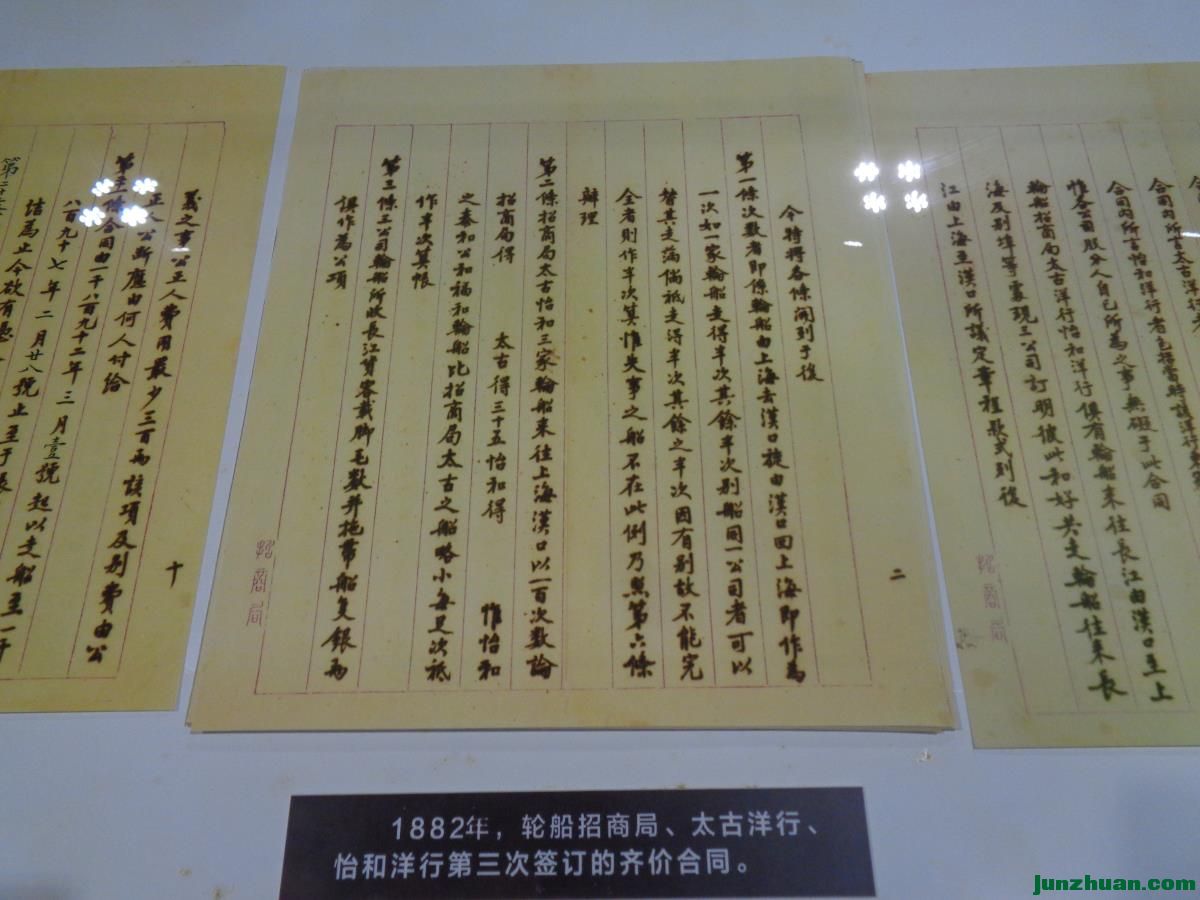 合同內所言太古洋行
合同內所言怡和洋行者包括當時該洋行
惟各公司股分人自己所為之事無礙于此合同
輪船招商局太古洋行怡和洋行俱有輪船來往長江由漢口至上
海及别埠等處現三公司訂明彼此和好共走輪船往來長
江由上海至漢口所議定章程款式列後
招商局
二
今特將各條開列于後
第一條次數者即係輪船由上海去漢口旋由漢口回上海即作為
一次如一家輪船走得半次其餘半次別船同一公司者可以
替其走滿倘祗走得半次其餘之半次因有別故不能完
全者則作半次算惟失事之船不在此例乃照第六條
辦理
第二條招商局太古怡和三家輪船來往上海漢口以一百次數論
招商局得 太古得三十五怡和得 惟怡和
之泰和公和福和輪船比招商局太古之船略小每足次祗
作半次算帳
第三條三公司輪船所收長江貨客載脚毛數并拖帶船隻銀兩
俱作為公項
招商局
十
義之事公正人費用最少三百兩該項及別費由公
正人公斷應由何人付給
合同由一千八百九十二年三月壹號起以走船至一千
八百九十七年二月廿八號止至于長
江為止今欲有憑
1882年，轮船招商局、太古洋行、
怡和洋行第三次签订的齐价合同。
junzhuan.com